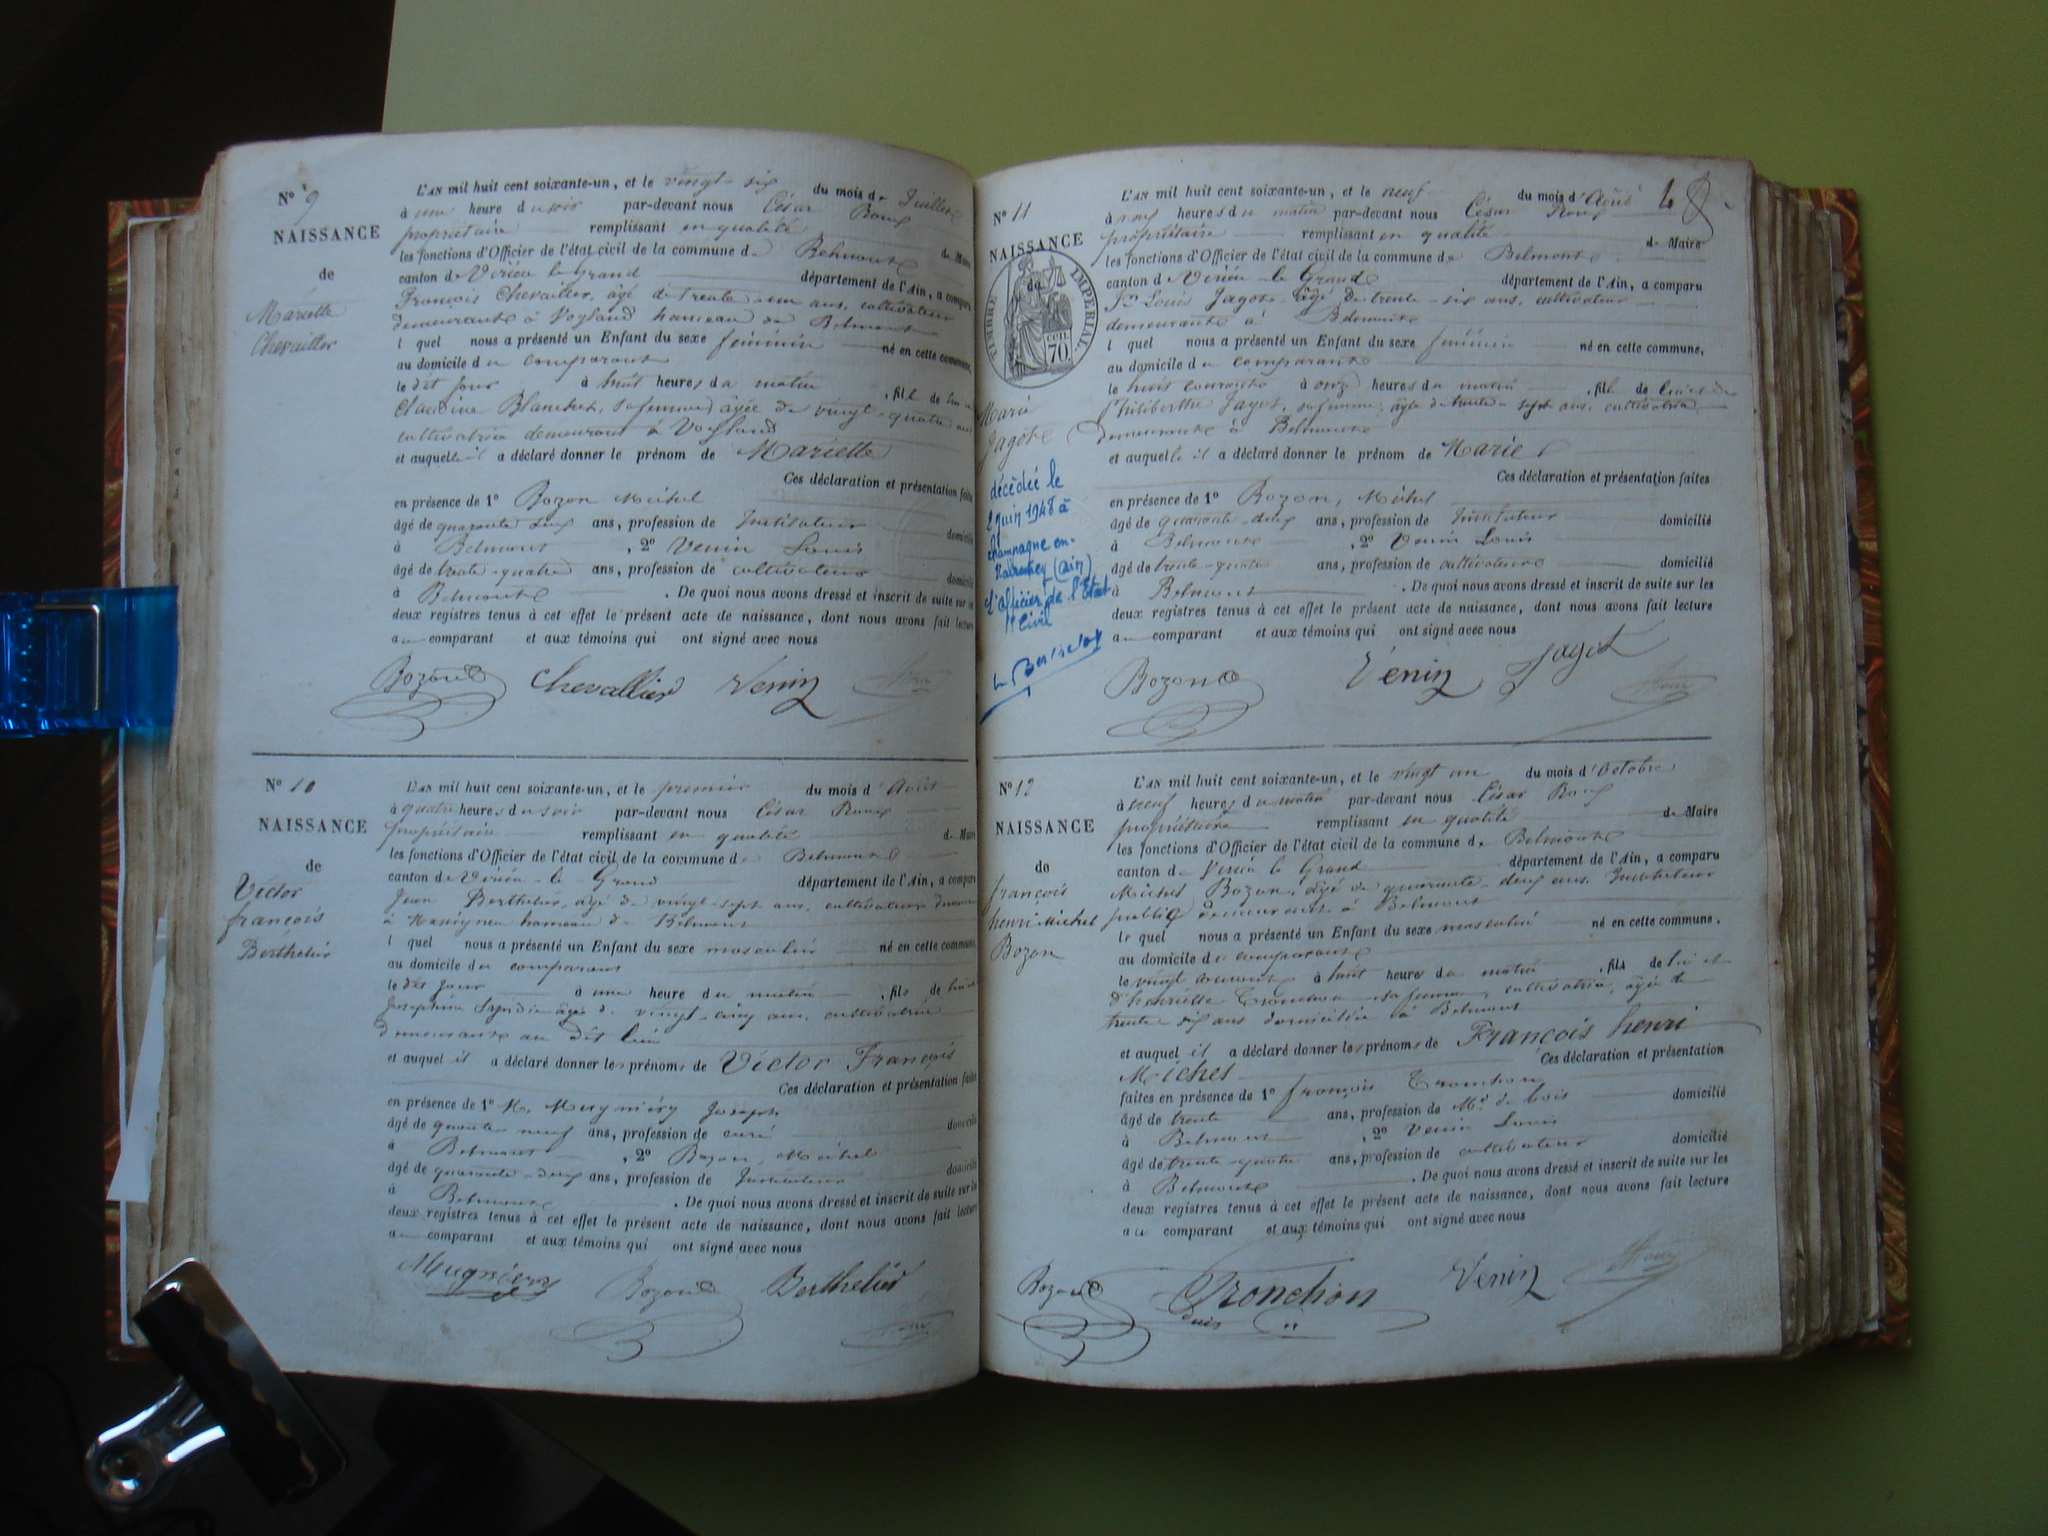 N° 9
NAISSANCE
de
Mariette
Chevallier
L'AN mil huit cent soixante-un, et le vingt-six du mois de Juillet
à une heure du soir par-devant nous César Roux
propriétaire remplissant en qualité de Maire
les fonctions d'Officier de l'état civil de la commune de Belmont
canton de Virieu le Grand département de l'Ain, a comparu
François Chevallier, âgé de trente-un ans, cultivateur
demeurant à Vogland hameau de Belmont
lequel nous a présenté un Enfant du sexe féminin né en cette commune,
au domicile du comparant
le dit jour à huit heures du matin, fille de lui
Claudine Blanchet, sa femme, âgée de vingt-quatre ans
cultivatrice demeurant à Vogland
et auquel il a déclaré donner le prénom de Mariette
Ces déclaration et présentation faites
en présence de 1° Bozon Michel
âgé de quarante deux ans, profession de Instituteur domicilié
à Belmont, 2° Venin Louis
âgé de trente-quatre ans, profession de cultivateur domicilié
à Belmont. De quoi nous avons dressé et inscrit de suite sur les
deux registres tenus à cet effet le présent acte de naissance, dont nous avons fait lecture
au comparant et aux témoins qui ont signé avec nous
Bozon Chevallier Venin Roux
N° 10
NAISSANCE
de
Victor
françois
Berthelier
L'AN mil huit cent soixante-un, et le premier du mois d'Août
à quatre heures du soir par-devant nous César Roux
propriétaire remplissant en qualité de Maire
les fonctions d'Officier de l'état civil de la commune de Belmont
canton de Virieu-le-Grand département de l'Ain, a comparu
Jean Berthelier, âgé de vingt-sept ans, cultivateur
à hameau de Belmont
lequel nous a présenté un Enfant du sexe masculin né en cette commune,
au domicile du comparant
le dit jour à une heure du matin, fils de lui
Joséphine âgée de vingt-cinq ans, cultivatrice
demeurant au dit lieu
et auquel il a déclaré donner les prénoms de Victor François
Ces déclaration et présentation faites
en présence de 1° M. Mugniéry Joseph
âgé de quarante neuf ans, profession de curé domicilié
à Belmont, 2° Bozon, Michel
âgé de quarante-deux ans, profession de Instituteur domicilié
à Belmont. De quoi nous avons dressé et inscrit de suite sur les
deux registres tenus à cet effet le présent acte de naissance, dont nous avons fait lecture
au comparant et aux témoins qui ont signé avec nous
Mugniéry Bozon Berthelier Roux
48
N° 11
NAISSANCE
de
TIMBRE IMPERIAL
70 CEN.
Marie
Jagot
décédée le
2 juin 1948 à
Champagne en-
Valromey (Ain)
L'Officier de l'Etat
Civil
Berthelot
L'AN mil huit cent soixante-un, et le neuf du mois d'Août
à neuf heures du matin par-devant nous César Roux
propriétaire remplissant en qualité de Maire
les fonctions d'Officier de l'état civil de la commune de Belmont
canton de Virieu-le-Grand département de l'Ain, a comparu
Jn Louis Jagot, âgé de trente-six ans, cultivateur
demeurant à Belmont
lequel nous a présenté un Enfant du sexe féminin né en cette commune,
au domicile du comparant
le huit courant à onze heures du matin, fille de lui et de
Philiberthe Jagot, sa femme, âgée de trente-sept ans, cultivatrice
demeurant à Belmont
et auquel il a déclaré donner le prénom de Marie
Ces déclaration et présentation faites
en présence de 1° Bozon, Michel
âgé de quarante-deux ans, profession de Instituteur domicilié
à Belmont, 2° Venin Louis
âgé de trente-quatre ans, profession de cultivateur domicilié
à Belmont. De quoi nous avons dressé et inscrit de suite sur les
deux registres tenus à cet effet le présent acte de naissance, dont nous avons fait lecture
au comparant et aux témoins qui ont signé avec nous
Bozon Venin Jagot Roux
N° 12
NAISSANCE
de
françois
henri Michel
Bozon
L'AN mil huit cent soixante-un, et le vingt un du mois d'Octobre
à neuf heures du matin par-devant nous César Roux
propriétaire remplissant en qualité de Maire
les fonctions d'Officier de l'état civil de la commune de Belmont
canton de Virieu le Grand département de l'Ain, a comparu
Michel Bozon, âgé de quarante-deux ans, Instituteur
public demeurant à Belmont
lequel nous a présenté un Enfant du sexe masculin né en cette commune,
au domicile du comparant
le vingt courant à huit heures du matin, fils de lui et
d'henriette Tronchon sa femme, cultivatrice, âgée de
trente six ans domiciliée à Belmont
et auquel il a déclaré donner les prénoms de François henri
Michel Ces déclaration et présentation
faites en présence de 1° françois Tronchon
âgé de trente ans, profession de Md de bois domicilié
à Belmont, 2° Venin Louis
âgé de trente-quatre ans, profession de cultivateur domicilié
à Belmont. De quoi nous avons dressé et inscrit de suite sur les
deux registres tenus à cet effet le présent acte de naissance, dont nous avons fait lecture
au comparant et aux témoins qui ont signé avec nous
Bozon Tronchon Venin Roux